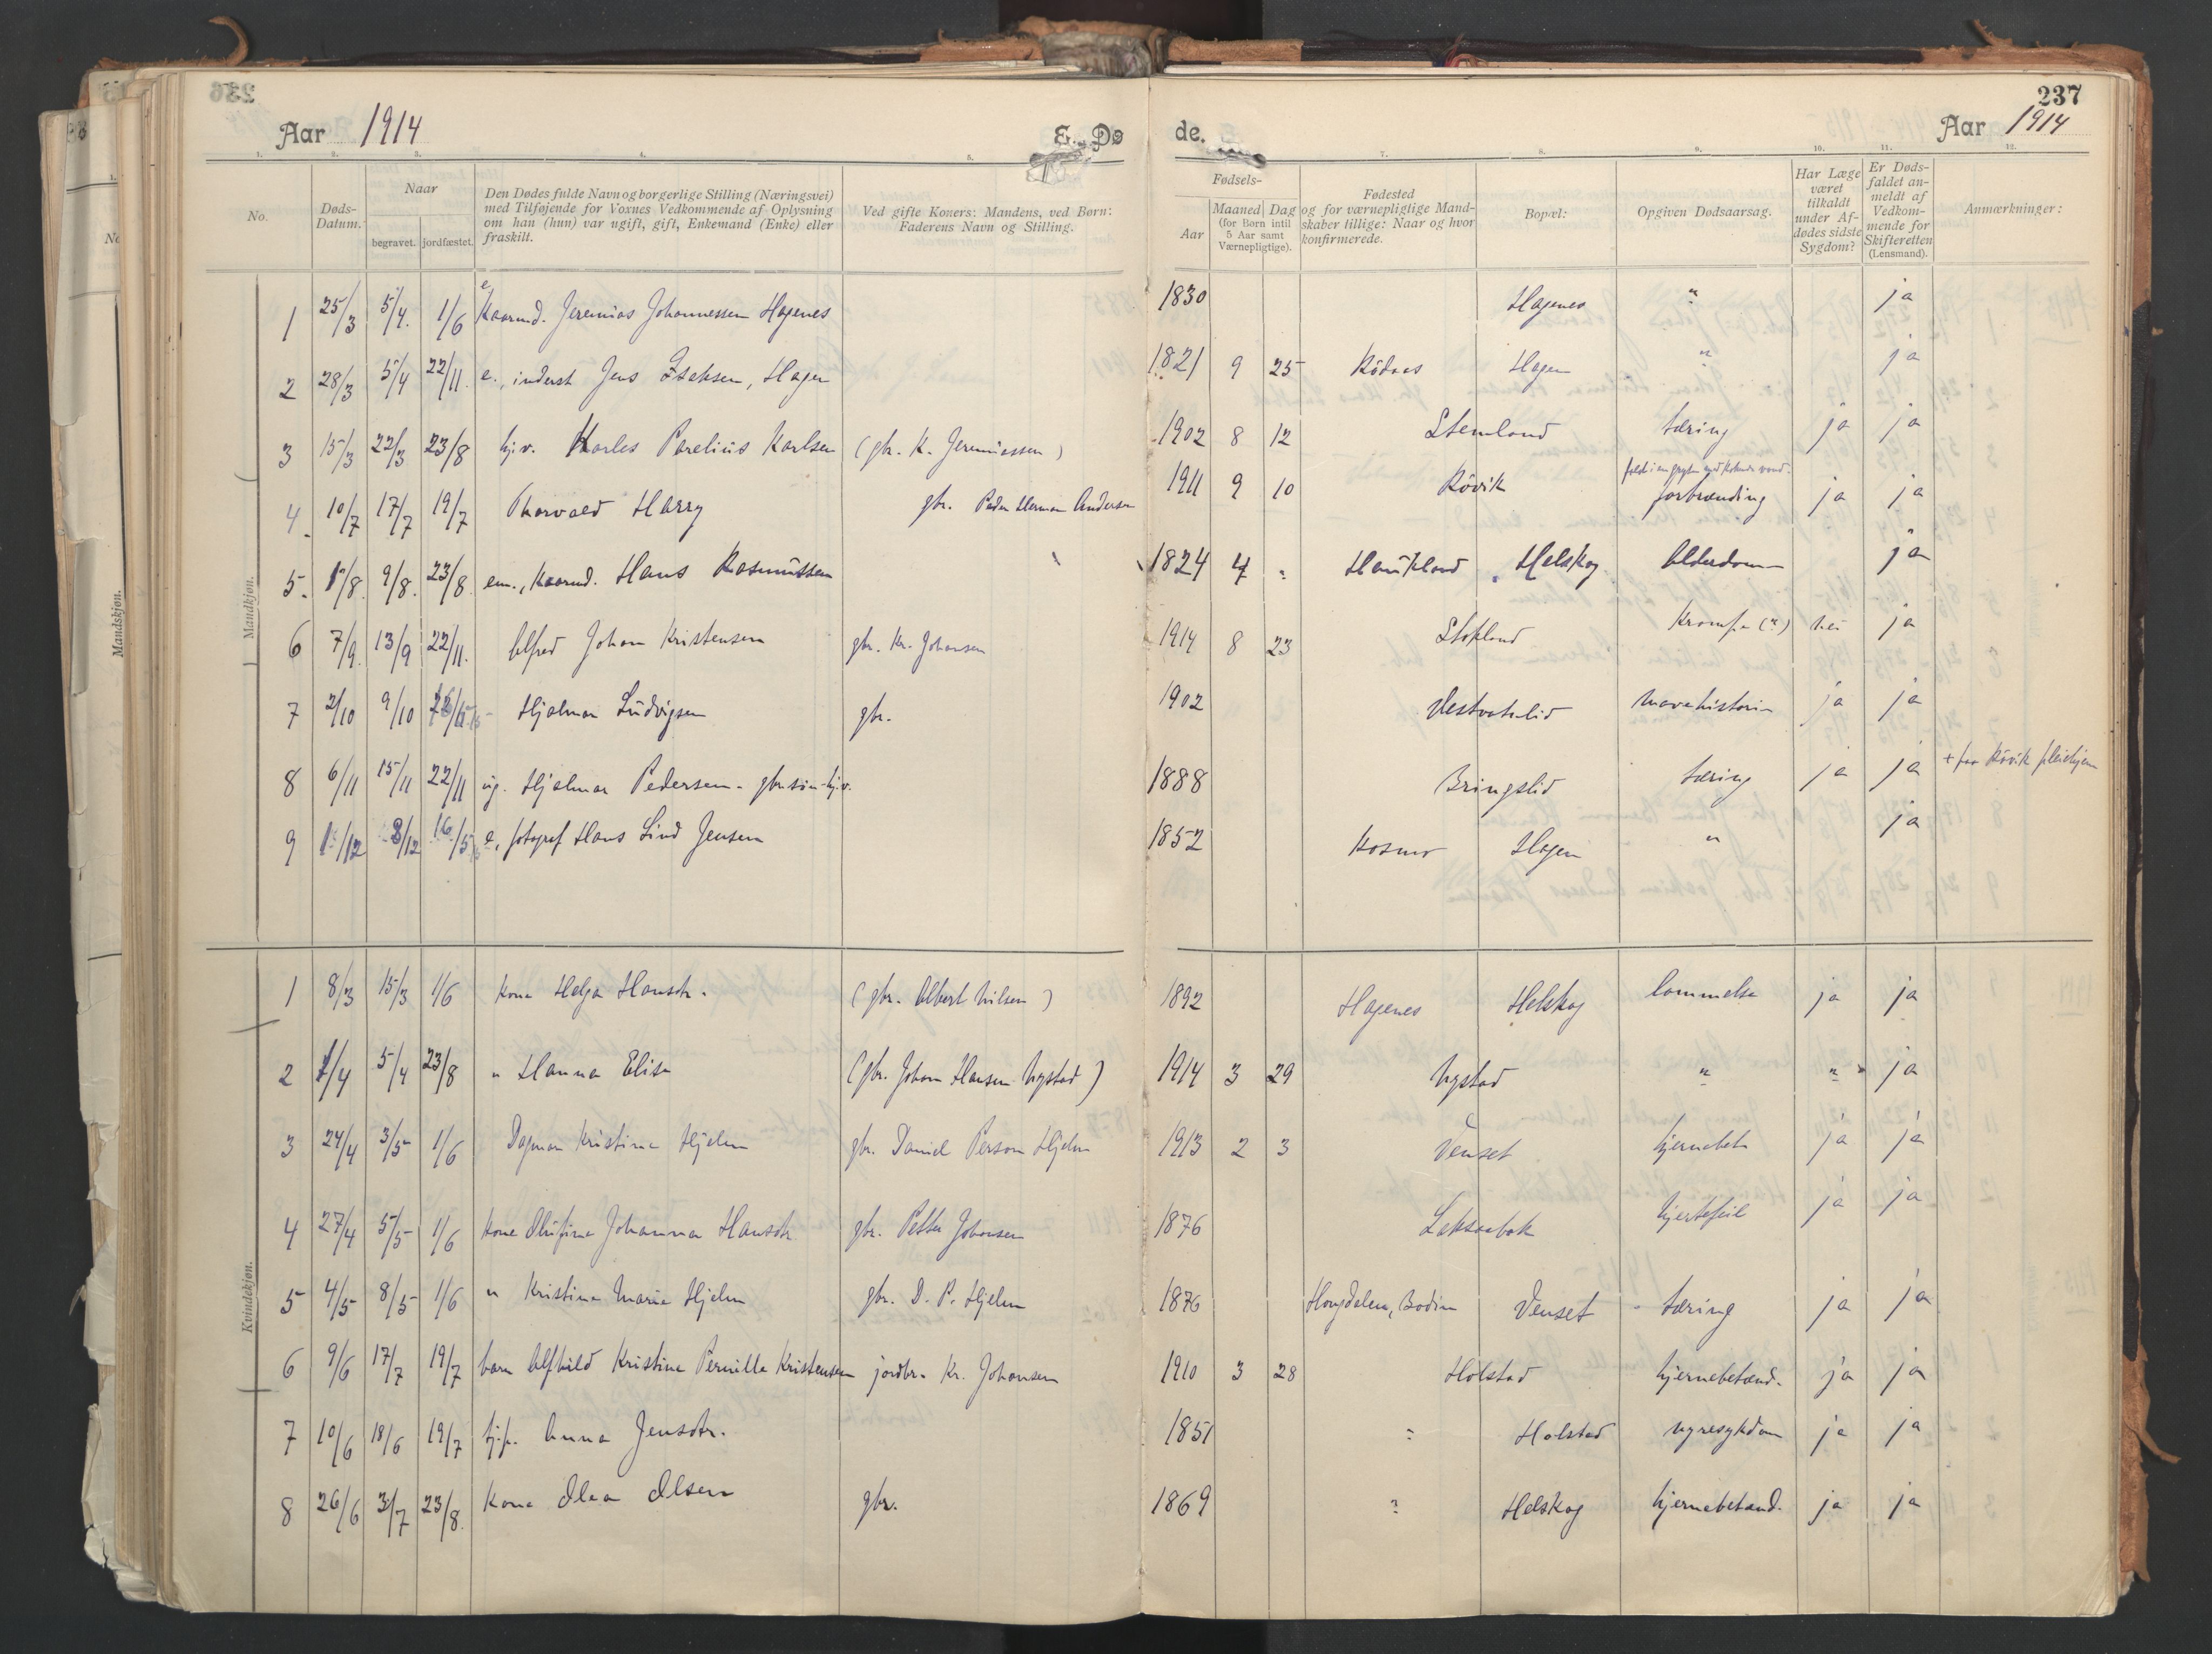 236
237
Aar 1914 E. Dø de. Aar 1914
1. 2. 3. 4. 5. 7. 8. 9. 10. 11. 12.
No.
Døds-
Datum.
Naar
begravet. jordfæstet.
Den Dødes fulde Navn og borgerlige Stilling (Næringsvei)
med Tilføjende for Voxnes Vedkommende af Oplysning
om han (hun) var ugift, gift, Enkemand (Enke) eller
fraskilt.
Ved gifte Koners: Mandens, ved Børn:
Faderens Navn og Stilling.
Fødsels-
Aar
Maaned
(for Børn intil
5 Aar samt
Værnepligtige).
Dag
Fødested
og for værnepligtige Mand-
skaber tillige: Naar og hvor
konfirmerede.
Bopæl:
Opgiven Dødsaarsag.
Har Læge
været
tilkaldt
under Af-
dødes sidste
Sygdom?
Er Døds-
faldet an-
meldt af
Vedkom-
mende for
Skifteretten
(Lensmand).
Anmærkninger:
Mandkjøn.
1 25/3 5/4. 1/6 e. Kaarmd. Jeremias Johannessen Hagenes 1830 Hagenes " ja
2 28/3 5/4 22/11. e., inderst Jens Isaksen, Hagen 1821 9 25 Rödaas Hagen " ja
3 15/3 22/3 23/8 hjv. Karles Parelius Karlsen (gbr. K. Jeremiassen) 1902 8 12 Stemland tæring ja ja
4. 10/7 17/7 19/7 Thorvald Harry gbr. Peder Herman Andersen 1911 9 10 Rövik forbrænding ja ja
5. 1/8. 9/8. 23/8. em., Kaarmd. Hans Rasmussen 1824 4 " Haukland Helskog Alderdom ja
6 7/9. 13/9 22/11. Alfred Johan Kristensen gbr. Kr. Johansen 1914 8 23 Stokland Krampe (?) nei ja
7 2/10 9/10 Hjalmar Ludvigsen gbr. 1902 Vestvatnlid ja ja
8 6/11 15/11 22/11 ug. Hjalmar Pedersen - gbr.sön - hjv. 1888 Bringslid tæring ja ja + paa Rövik pleiehjem
9 1/12 8/12 16/5 e, fotograf Hans Lind Jensen 1852 Kosmo Hagen " ja
Kvindekjøn.
1 8/3 15/3 1/6 Kone Helga Hansdtr. (gbr. Albert Nilsen) 1892 Hagenes Helskog lammelse ja ja
2 1/4 5/4 23/8 " Hanna Elise (gbr. Johan Hansen Nystad) 1914 3 29 Nystad " " ja
3 24/4 3/5 1/6 Dagmar Kristine Hjelm gbr. Daniel Person Hjelm 1913 2 3 Venset hjernebet ja ja
4 27/4 5/5 1/6 Kone Olufine Johanna Hansdtr. gbr. Petter Johansen 1876 hjertefeil ja ja
5 4/5 8/5 1/6 " Kristine Marie Hjelm gbr. D. P. Hjelm 1876 Hongdalen, Bodin Venset tæring ja ja
6 9/6 17/7 19/7 barn Alfhild Kristine Pernille Kristensen jordbr. Kr. Johansen 1910 3 28 Holstad hjernebetænd. ja ja
7 10/6 18/6 19/7 Anna Jensdtr. 1851 " Holstad nyresykdom ja ja
8 26/6 3/7 23/8. Kone Olea Olsen gbr. 1869 " Helskog hjernebetænd. ja ja
Mandskjøn.